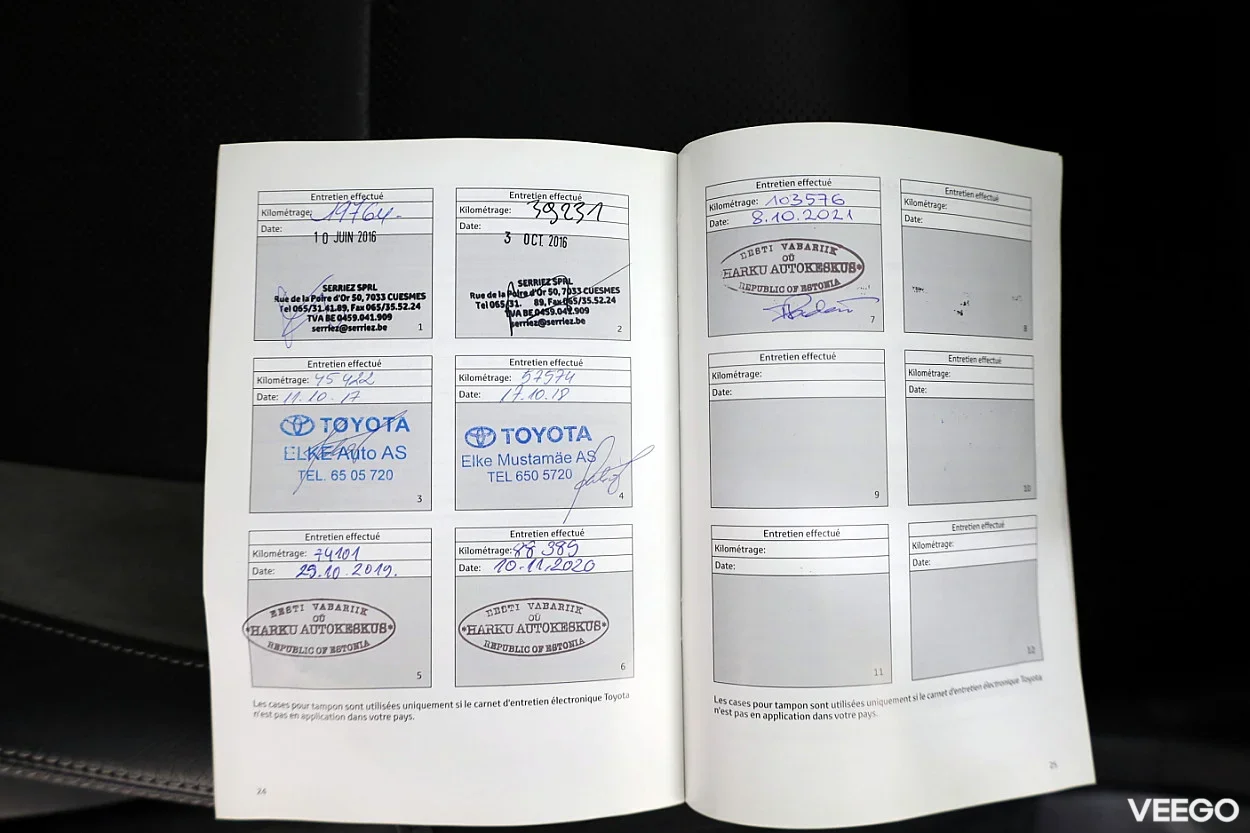 Entretien effectué
Kilométrage: 19764.-
Date:
10 JUIN 2016
SERRIEZ SPRL
Rue de la Poire d'Or 50, 7033 CUESMES
Tel 065/31.41.89, Fax 065/35.52.24
TVA BE 0459.041.909
serriez@serriez.be
1
Entretien effectué
Kilométrage: 39231
Date:
3 OCT. 2016
SERRIEZ SPRL
Rue de la Poire d'Or 50, 7033 CUESMES
Tel 065/31. 89, Fax 065/35.52.24
TVA BE 0459.041.909
serriez@serriez.be
2
Entretien effectué
Kilométrage: 45422
Date: 11.10.17
TOYOTA
ELKE Auto AS
TEL. 65 05 720
3
Entretien effectué
Kilométrage: 57574
Date: 17.10.18
TOYOTA
Elke Mustamäe AS
TEL 650 5720
4
Entretien effectué
Kilométrage: 74101
Date: 29.10.2019.
EESTI VABARIIK
OÜ
*HARKU AUTOKESKUS*
REPUBLIC OF ESTONIA
5
Entretien effectué
Kilométrage: 88 389
Date: 10.11.2020
EESTI VABARIIK
OÜ
*HARKU AUTOKESKUS*
REPUBLIC OF ESTONIA
6
Les cases pour tampon sont utilisées uniquement si le carnet d'entretien électronique Toyota
n'est pas en application dans votre pays.
24
Entretien effectué
Kilométrage: 103576
Date: 8.10.2021
EESTI VABARIIK
OÜ
HARKU AUTOKESKUS*
REPUBLIC OF ESTONIA
7
Entretien effectué
Kilométrage:
Date:
8
Entretien effectué
Kilométrage:
Date:
9
Entretien effectué
Kilométrage:
Date:
10
Entretien effectué
Kilométrage:
Date:
11
Entretien effectué
Kilométrage:
Date:
12
Les cases pour tampon sont utilisées uniquement si le carnet d'entretien électronique Toyota
n'est pas en application dans votre pays.
25
VEEGO